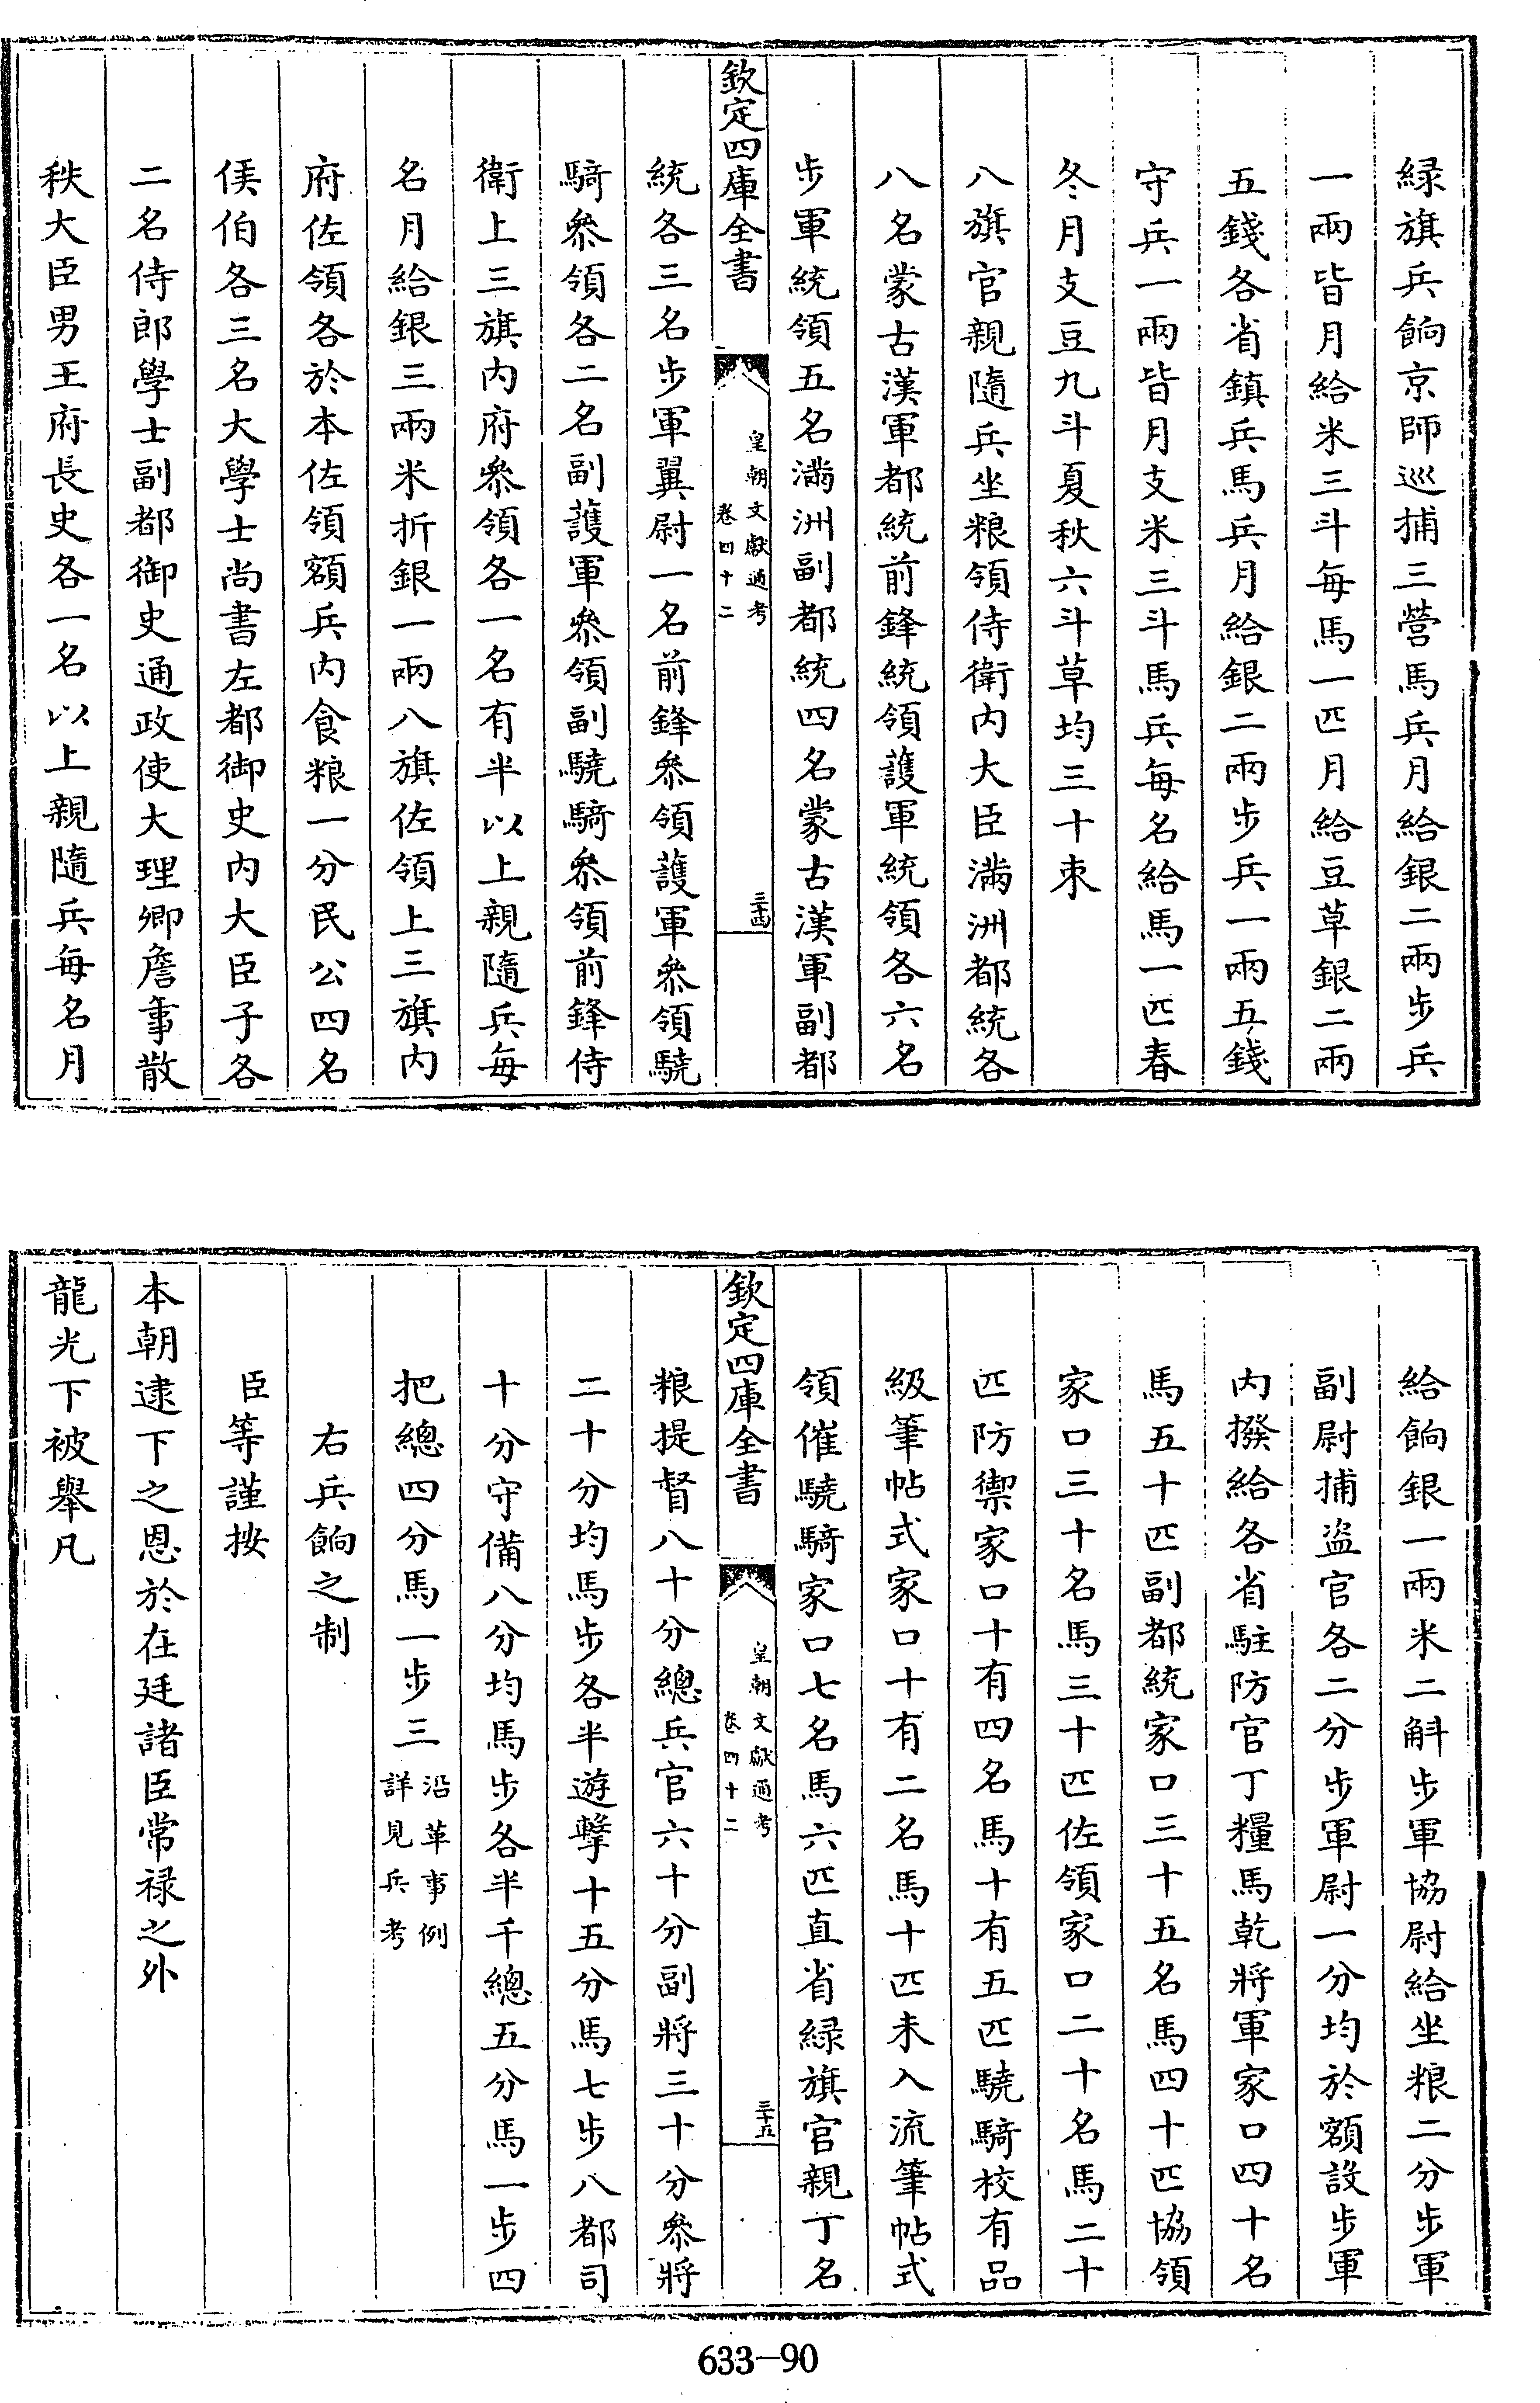 綠旗兵餉京師巡捕三營馬兵月給銀二兩步兵
一兩皆月給米三斗每馬一匹月給豆草銀二兩
五錢各省鎮兵馬兵月給銀二兩步兵一兩五錢
守兵一兩皆月支米三斗馬兵每名給馬一匹春
冬月支豆九斗夏秋六斗草均三十束
八旗官親隨兵坐粮領侍衛內大臣滿洲都統各
八名蒙古漢軍都統前鋒統領護軍統領各六名
步軍統領五名滿洲副都統四名蒙古漢軍副都
欽定四庫全書
皇朝文獻通考
卷四十二
三十四
統各三名步軍翼尉一名前鋒參領護軍參領驍
騎參領各二名副護軍參領副驍騎參領前鋒侍
衛上三旗內府參領各一名有半以上親隨兵每
名月給銀三兩米折銀一兩八旗佐領上三旗內
府佐領各於本佐領額兵內食粮一分民公四名
侯伯各三名大學士尚書左都御史內大臣子各
二名侍郎學士副都御史通政使大理卿詹事散
秩大臣男王府長史各一名以上親隨兵每名月
給餉銀一兩米二斛步軍協尉給坐粮二分步軍
副尉捕盜官各二分步軍尉一分均於額設步軍
內撥給各省駐防官丁糧馬乾將軍家口四十名
馬五十匹副都統家口三十五名馬四十匹協領
家口三十名馬三十匹佐領家口二十名馬二十
匹防禦家口十有四名馬十有五匹驍騎校有品
級筆帖式家口十有二名馬十匹未入流筆帖式
領催驍騎家口七名馬六匹直省綠旗官親丁名
欽定四庫全書
皇朝文獻通考
卷四十二
三十五
粮提督八十分總兵官六十分副將三十分參將
二十分均馬步各半遊擊十五分馬七步八都司
十分守備八分均馬步各半千總五分馬一步四
把總四分馬一步三沿革事例
詳見兵考
右兵餉之制
臣等謹按
本朝逮下之恩於在廷諸臣常祿之外
龍光下被舉凡
633-90